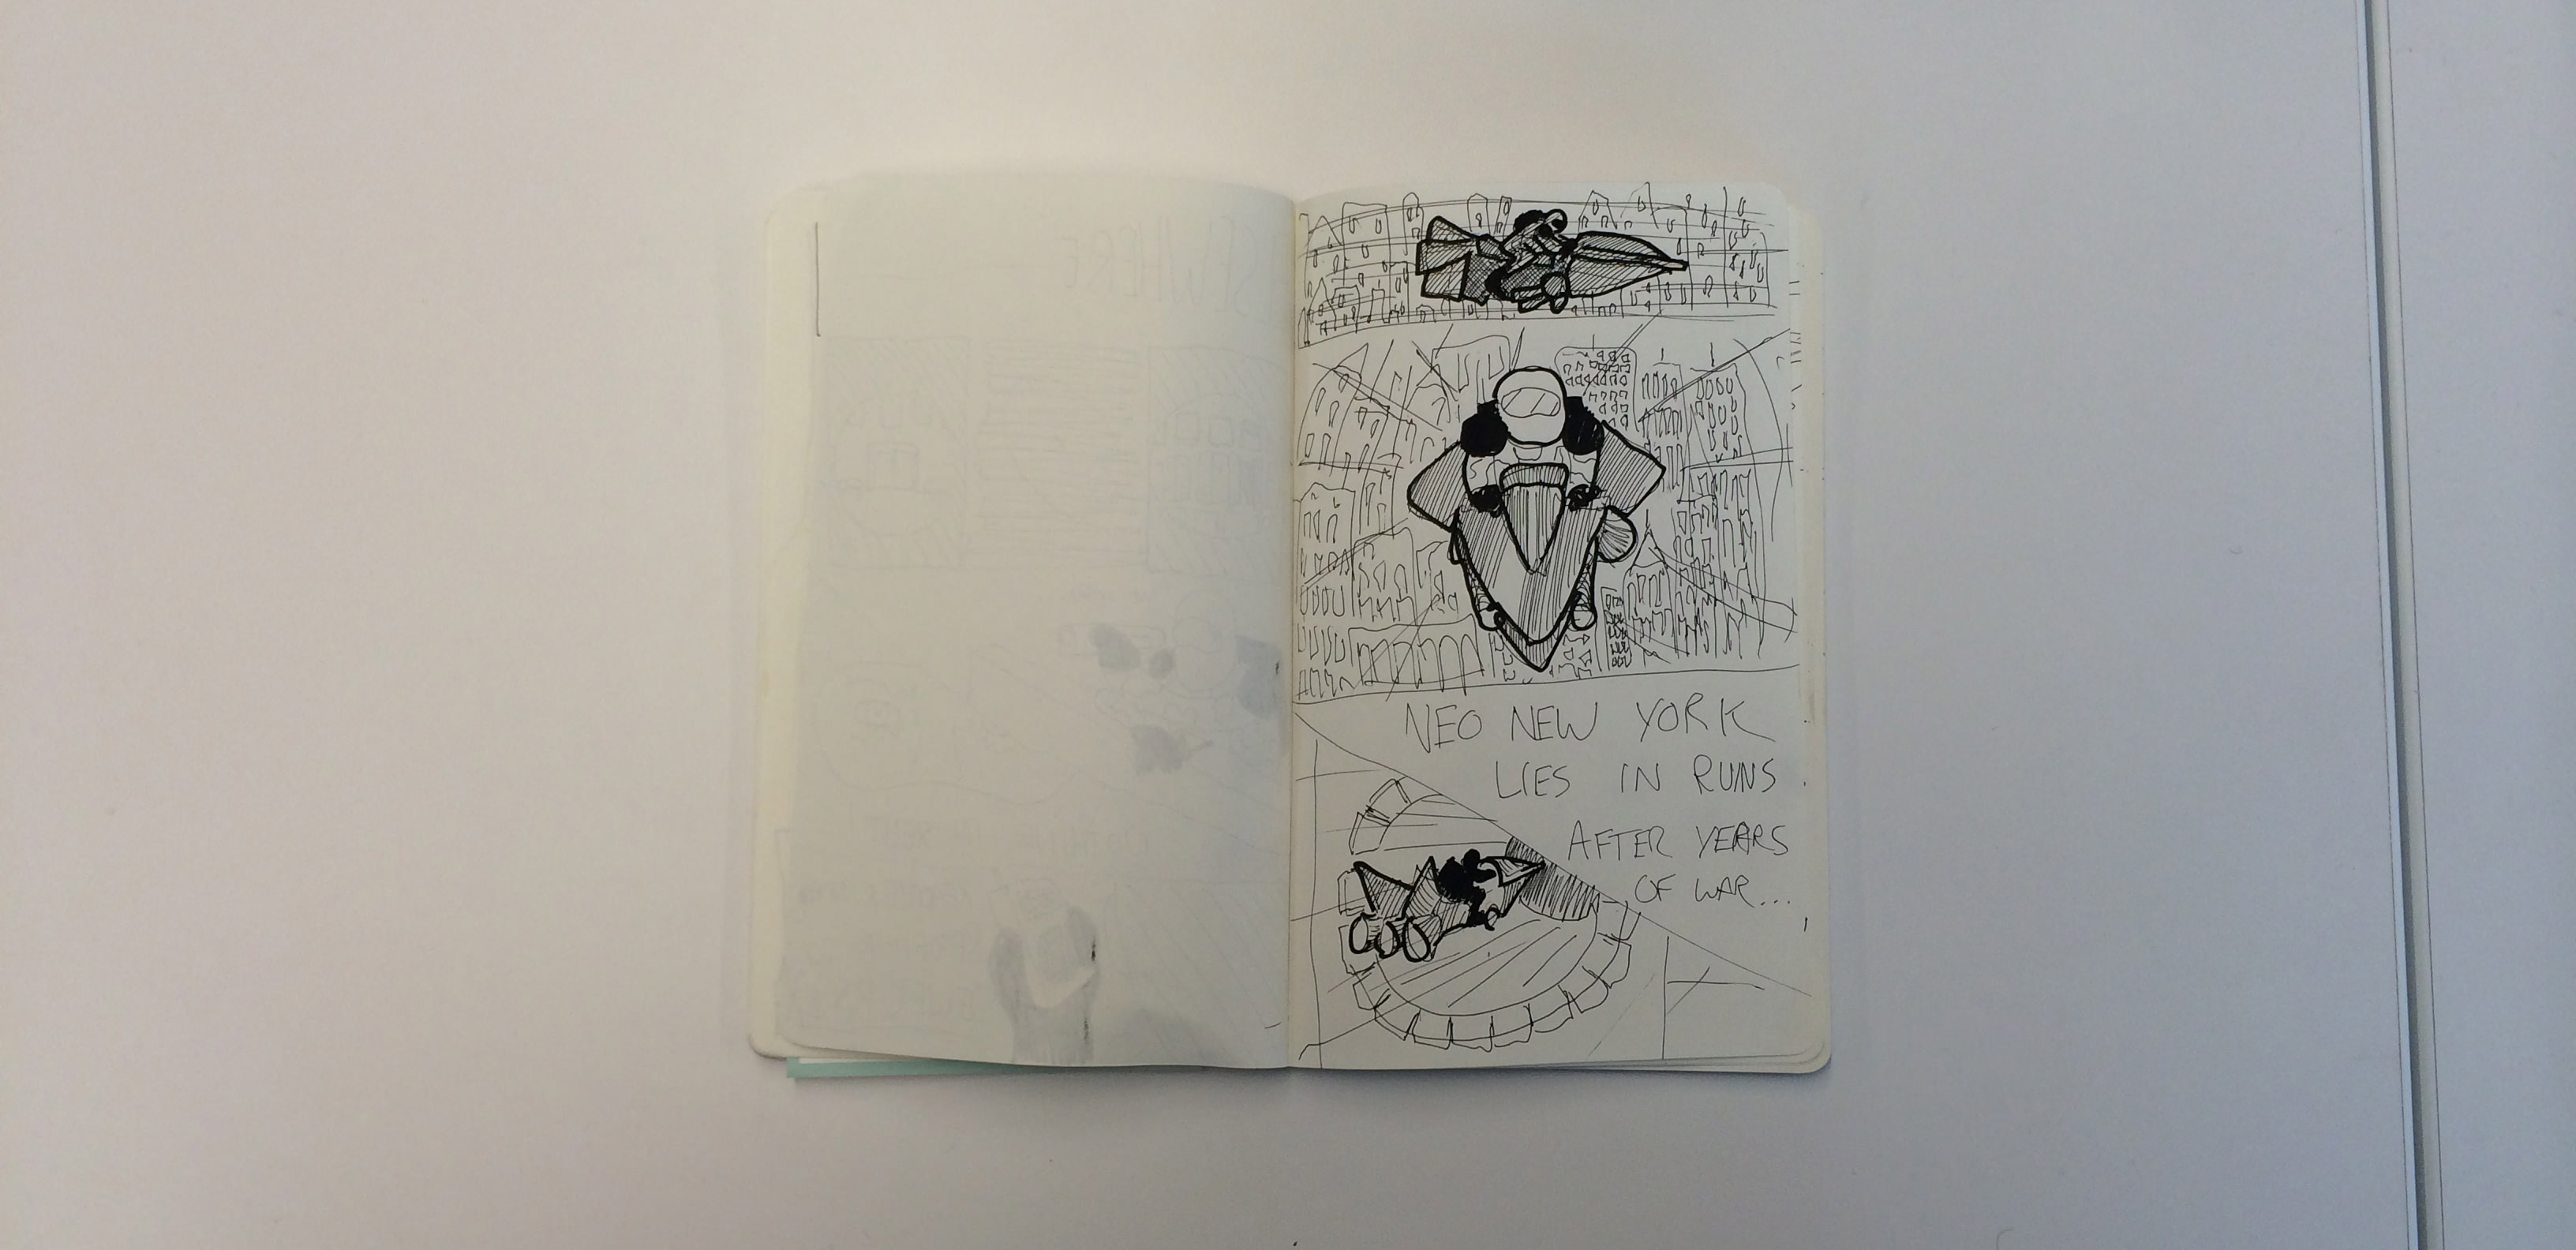 NEO NEW YORK
LIES IN RUNS
AFTER YEARS
OF WAR...